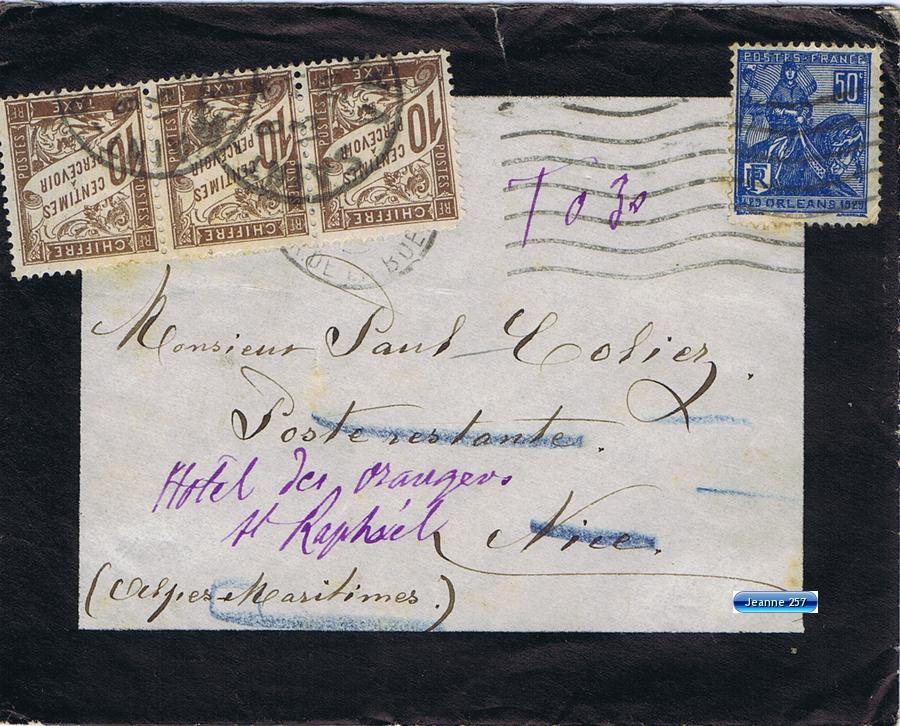 POSTES - FRANCE
50c
RF
1429 ORLEANS 1929
10 CENTIMES À PERCEVOIR
CHIFFRE TAXE
POSTES RF
10 CENTIMES À PERCEVOIR
CHIFFRE TAXE
POSTES RF
10 CENTIMES À PERCEVOIR
CHIFFRE TAXE
POSTES RF
RUE
T 0 30
Monsieur Paul Colier.
Poste restante.
Hôtel des orangers
St Raphaël Nice.
(Alpes-Maritimes.)
Jeanne 257